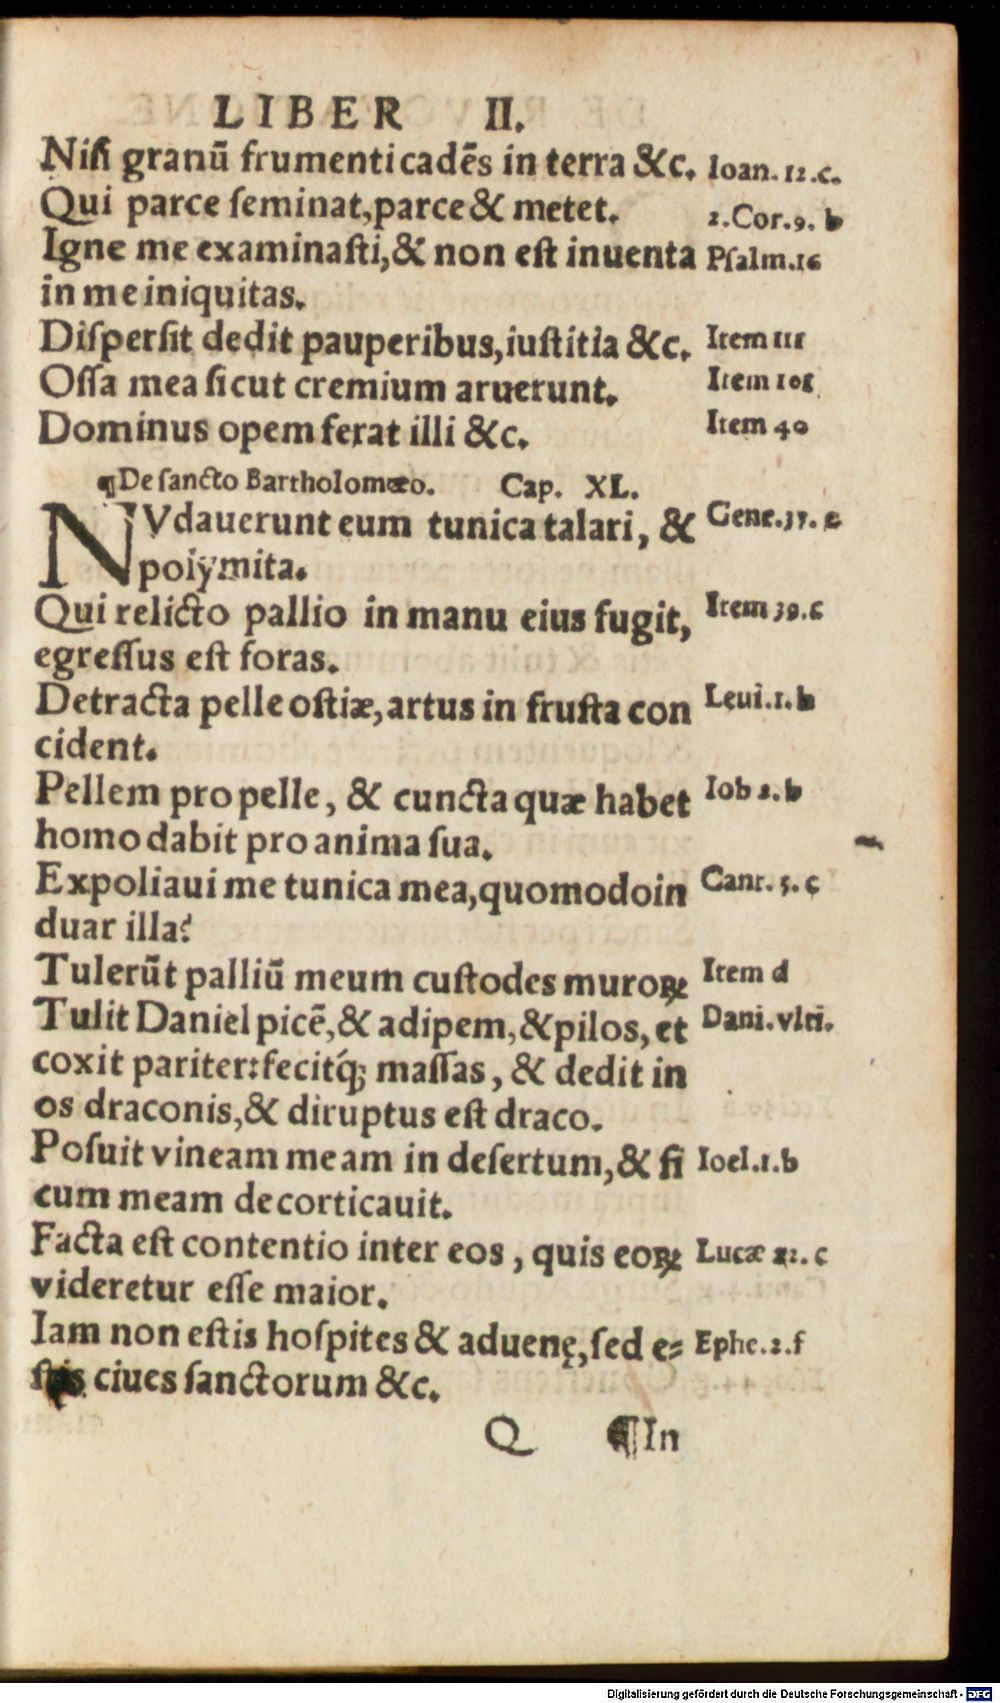 LIBER II.
Niſi granū frumenti cadēs in terra &c. Ioan. 12.c.
Qui parce ſeminat, parce & metet. 2.Cor.9. b
Igne me examinaſti, & non eſt inuenta Pſalm.16
in me iniquitas.
Diſperſit dedit pauperibus, iuſtitia &c. Item 111
Oſſa mea ſicut cremium aruerunt. Item 101
Dominus opem ferat illi &c. Item 40
¶De ſancto Bartholomæo. Cap. XL.
NVdauerunt eum tunica talari, & Gene.37.
polymita.
Qui relicto pallio in manu eius fugit, Item 39.c
egreſſus eſt foras.
Detracta pelle oſtiæ, artus in fruſta con Leui.1.b
cident.
Pellem pro pelle, & cuncta quæ habet Iob 2.b
homo dabit pro anima ſua.
Expoliaui me tunica mea, quomodo in Cant. 5. c
duar illa?
Tulerūt palliū meum cuſtodes muroꝝ Item d
Tulit Daniel picē, & adipem, & pilos, et Dani.vlti.
coxit pariter: fecitq́; maſſas, & dedit in
os draconis, & diruptus eſt draco.
Poſuit vineam meam in deſertum, & fi Ioel.1.b
cum meam decorticauit.
Facta eſt contentio inter eos, quis eoꝝ Lucæ 22. c
videretur eſſe maior.
Iam non eſtis hoſpites & aduenę, ſed e= Ephe.2.f
ſtis ciues ſanctorum &c.
Q ¶In
Digitalisierung gefördert durch die Deutsche Forschungsgemeinschaft - DFG